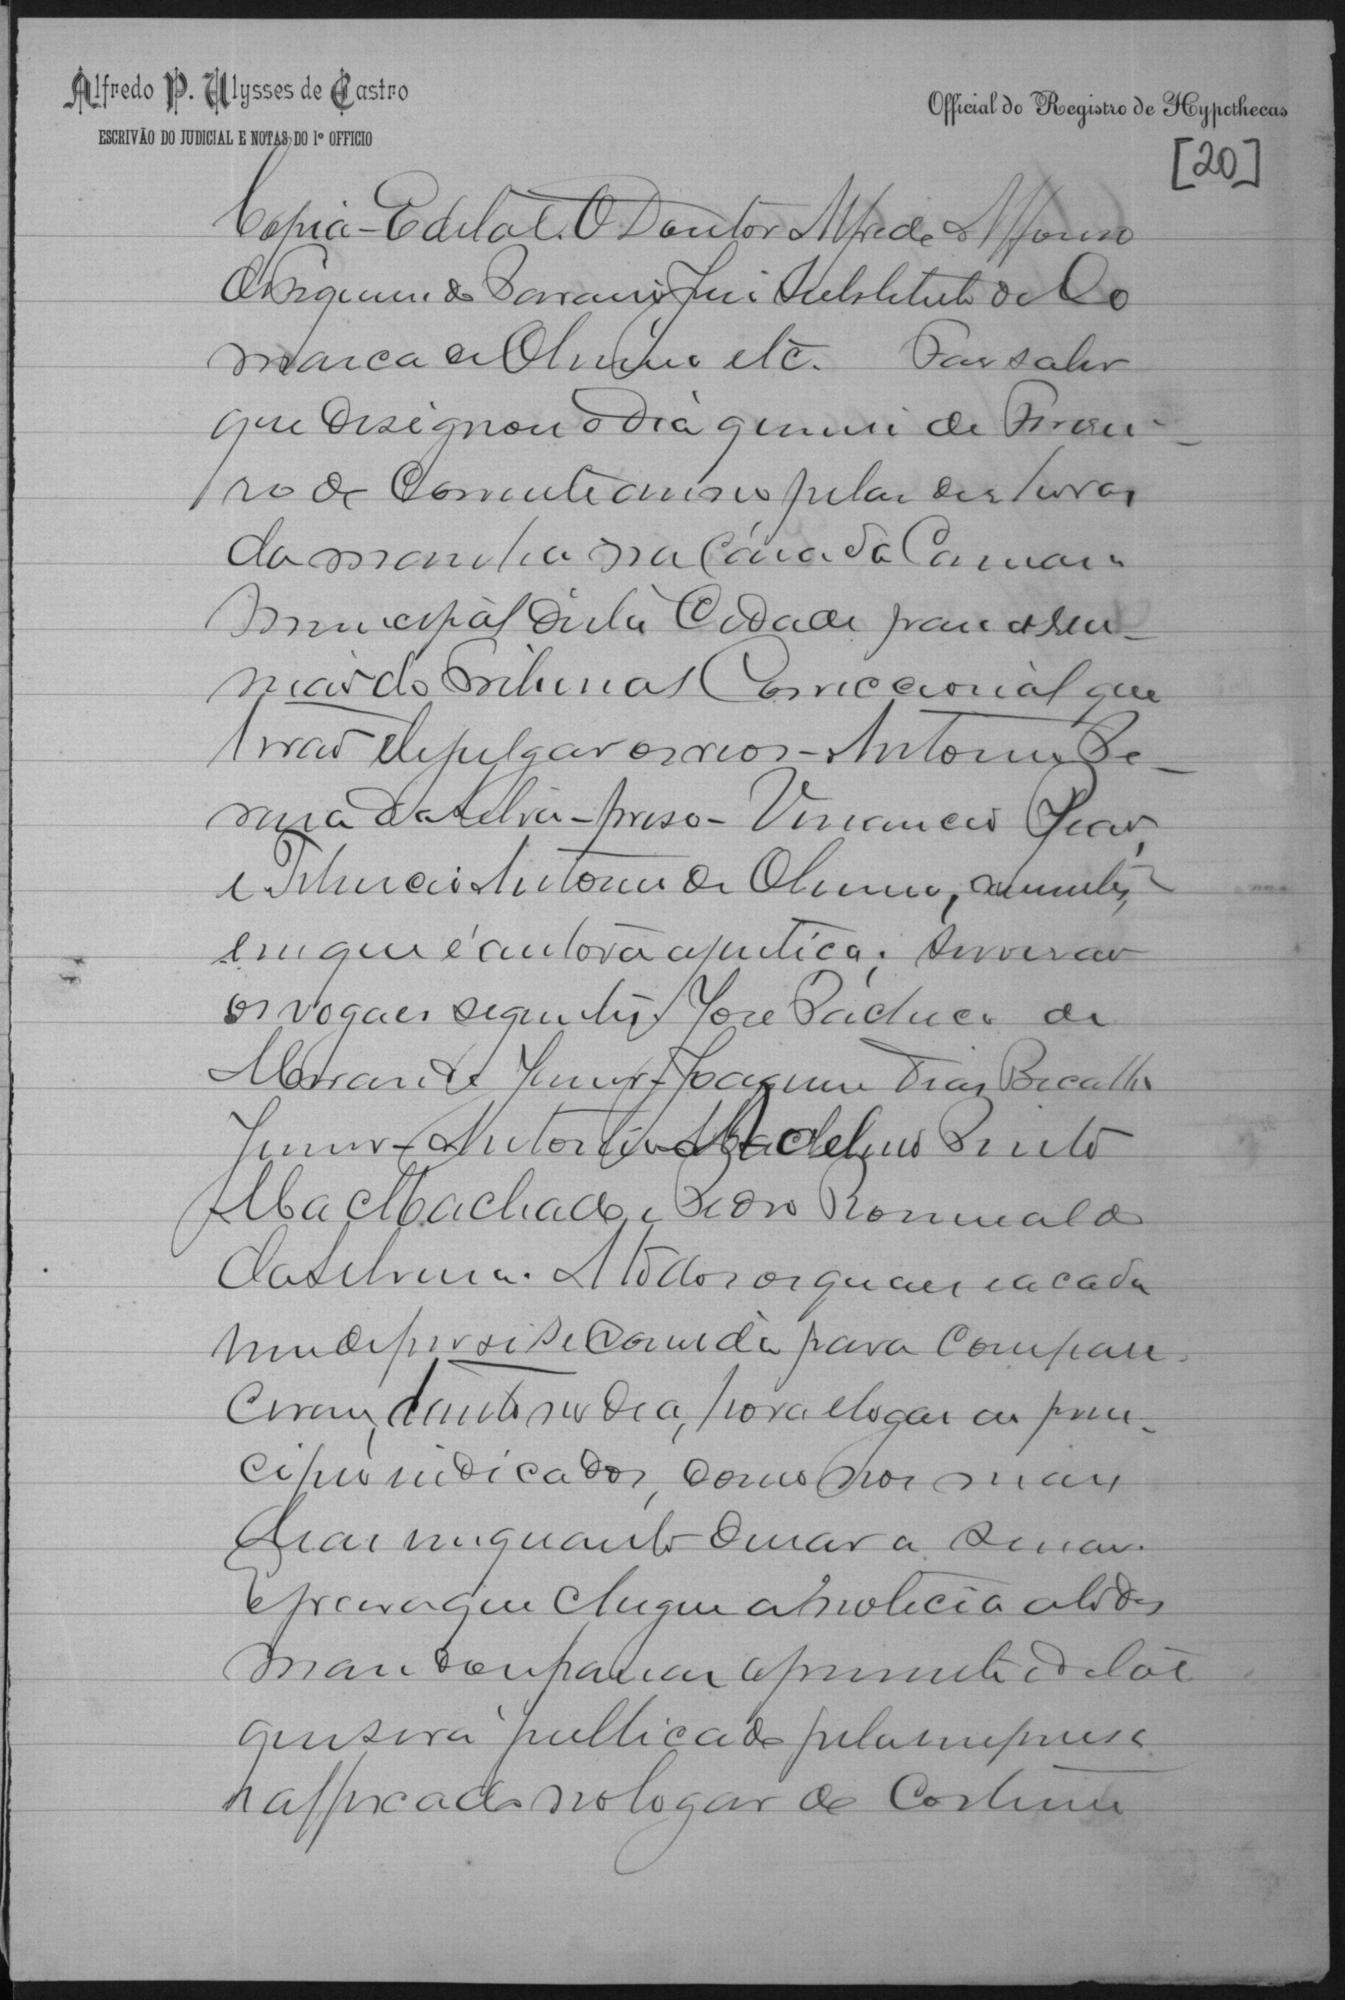 Alfredo P. Ulysses de Castro
ESCRIVÃO DO JUDICIAL E NOTAS DO 1º OFFICIO
Official do Registro de Hypothecas
[20]
Copia - Edital. O Doutor Alfredo Affonso
de Juiz Substituto da Co
marca de etc. Faz saber
que designou o dia quinze de Feverei-
ro do Corrente anno pelas dez horas
da manha na Caza da Camara
Municipal desta Cidade para a reu-
nião do Tribunal Correccional que
terão de julgar os reos - Antonio Pe-
reira da Silva - preso - Venancio
e Tiburcio Antonio de auzentes,
em que é autora a justiça; Serverão
os vogaes seguintes José Pacheco de
Junior - Joaquim Dias Bicalho
Junior - Antonio Adelino Pinto
Machado, e Pedro Romualdo
da Silveira. A todos os quaes e a cada
um de per si se convida para compare-
cerem, tanto no dia, hora e logar a prin-
cipio indicados, como nos mais
dias emquanto durar a sessão.
E para que chegue a noticia a todos
mandou passar o presente edital
que será publicado pela imprensa
e affixado no logar do Costume